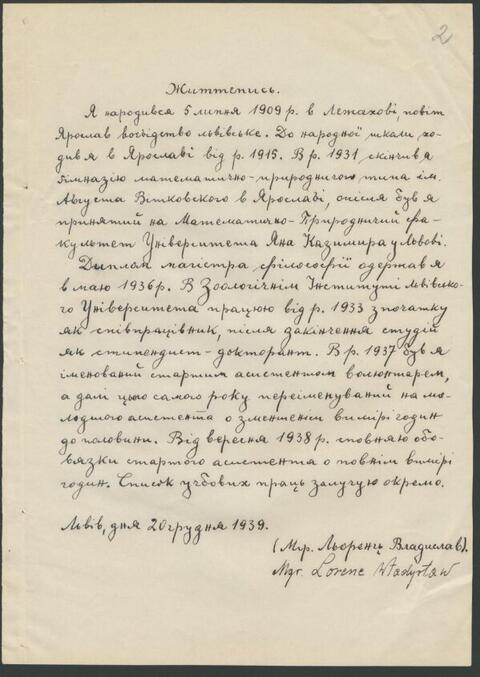 2
Життєпись.
Я народився 5 липня 1909 р. в Лежахові, повіт
Ярослав воєвідство львівське. До народної школи хо-
див я в Ярославі від р. 1915. В р. 1931 скінчив я
гімназію математично-природничого типа ім.
Августа Вітковского в Ярославі, опісля був я
принятий на Математично-Природничий фа-
культет Університета Яна Казимира у Львові.
Диплом магістра філософії одержав я
в маю 1936 р. В Зоологічнім Інституті Львівсько-
го Університета працюю від р. 1933 з початку
як співпрацівник, після закінчення студій
як стипендист-докторант. В р. 1937 був я
іменований старшим асистентом волонтарем,
а далі цього самого року переіменуваний на мо-
лодшого асистента о зменшенім вимірі годин
до половини. Від вересня 1938 р. сповняю обо-
вязки старшого асистента о повнім вимірі
годин. Список учбових праць залучую окремо.
Львів, дня 20 грудня 1939.
(Мґр. Льоренц Владислав).
Mgr. Lorenc Władysław